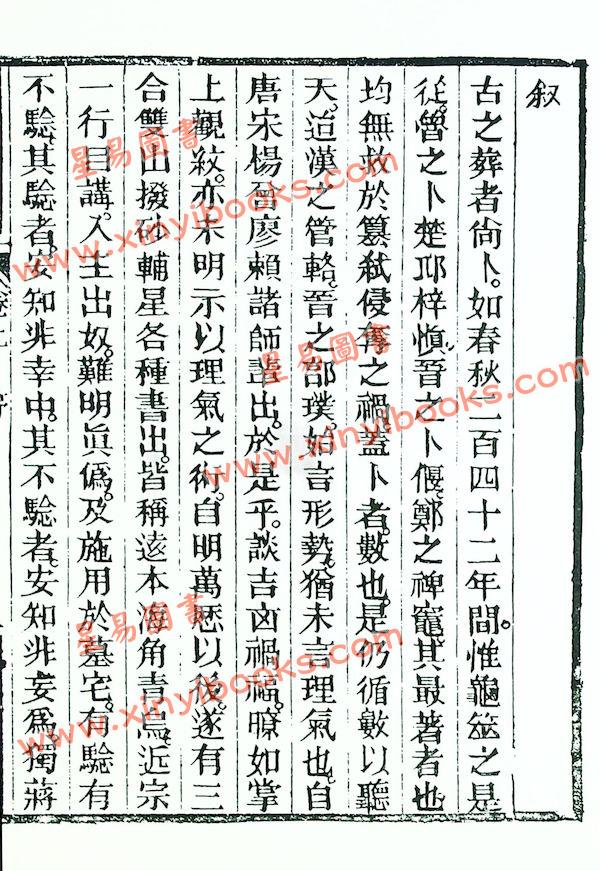 叙
古之葬者尙卜。如春秋二百四十二年間。惟龜筮之是
從。魯之卜楚邱梓愼。晉之卜偃。鄭之禆竈。其最著者也
均無救於簒弑侵奪之禍。蓋卜者。數也。是仍循數以聽
天。迨漢之管輅。晉之郭璞。始言形勢。猶未言理氣也。自
唐宋楊曾廖賴諸師輩出。於是乎。談吉凶禍福。瞭如掌
上觀紋。亦未明示以理氣之術。自明萬歴以後。遂有三
合雙山撥砂輔星各種書出。皆稱遠本海角靑烏。近宗
一行目講。入主出奴。難明眞僞。及施用於墓宅。有驗有
不驗。其驗者。安知非幸中。其不驗者。安知非妄爲。獨蔣
星易圖書
www.xinyibooks.com
星易圖書
www.xinyibooks.com
星易圖書
www.xinyibooks.com